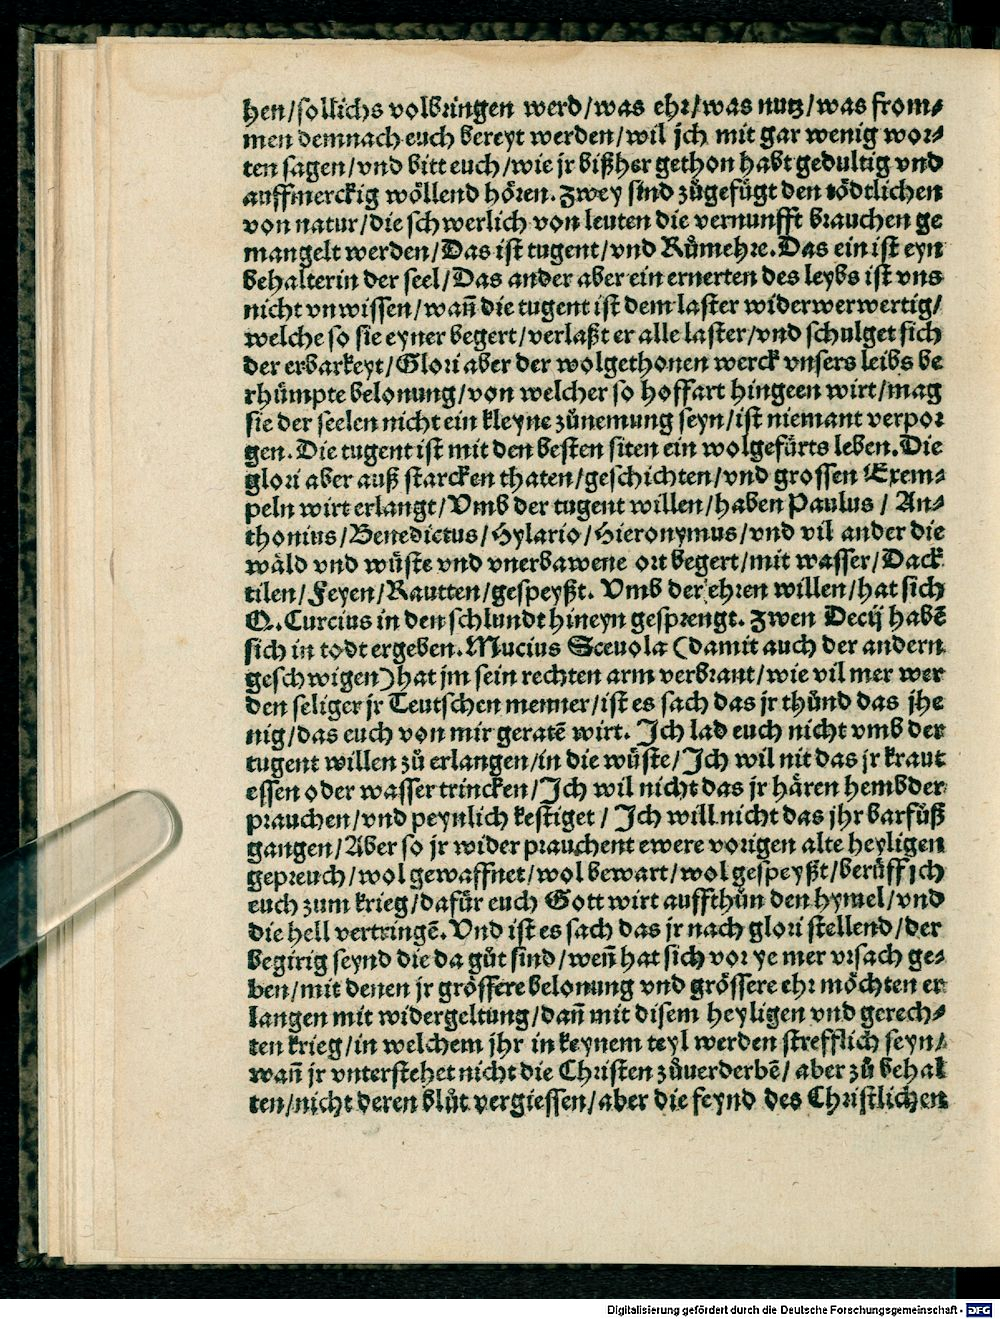 hen/sollichs volbringen werd/was ehr/was nutz/was from⸗
men demnach euch bereyt werden/wil jch mit gar wenig wor⸗
ten sagen/vnd bitt euch/wie jr bißher gethon habt gedultig vnd
auffmerckig wöllend hören. Zwey sind zůgefügt den tödtlichen
von natur/die schwerlich von leuten die vernunfft brauchen ge
mangelt werden/Das ist tugent/vnd Růmehre. Das ein ist eyn
behalterin der seel/Das ander aber ein ernerten des leybs ist vns
nicht vnwissen/wañ die tugent ist dem laster widerwerwertig/
welche so sie eyner begert/verlaßt er alle laster/vnd schulget sich
der erbarkeyt/Glori aber der wolgethonen werck vnsers leibs be
rhümpte belonung/von welcher so hoffart hingeen wirt/mag
sie der seelen nicht ein kleyne zůnemung seyn/ist niemant verpor
gen. Die tugent ist mit den besten siten ein wolgefürts leben. Die
glori aber auß starcken thaten/geschichten/vnd grossen Exem⸗
peln wirt erlangt/Vmb der tugent willen/haben Paulus/ An⸗
thonius/Benedictus/Hylario/Hieronymus/vnd vil ander die
wäld vnd wüste vnd vnerbawene ort begert/mit wasser/Dack
tilen/Feyen/Rautten/gespeyßt. Vmb der ehren willen/hat sich
Q. Curcius in den schlundt hineyn gesprengt. Zwen Decij habẽ
sich in todt ergeben. Mucius Sceuola (damit auch der andern
geschwigen) hat jm sein rechten arm verbrant/wie vil mer wer
den seliger jr Teutschen menner/ist es sach das jr thůnd das jhe
nig/das euch von mir geratẽ wirt. Ich lad euch nicht vmb der
tugent willen zů erlangen/in die wüste/Ich wil nit das jr kraut
essen oder wasser trincken/Ich wil nicht das jr hären hembder
prauchen/vnd peynlich kestiget/ Ich will nicht das jhr barfůß
gangen/Aber so jr wider prauchent ewere vorigen alte heyligen
gepreuch/wol gewaffnet/wol bewart/wol gespeyßt/berüff jch
euch zum krieg/dafür euch Gott wirt auffthůn den hymel/vnd
die hell vertringẽ. Vnd ist es sach das jr nach glori stellend/der
begirig seynd die da gůt sind/weñ hat sich vor ye mer vrsach ge⸗
ben/mit denen jr grössere belonung vnd grössere ehr möchten er
langen mit widergeltung/dañ mit disem heyligen vnd gerech⸗
ten krieg/in welchem jhr in keynem teyl werden strefflich seyn/
wañ jr vnterstehet nicht die Christen zůuerderbẽ/ aber zů behal
ten/nicht deren blůt vergiessen/aber die feynd des Christlichen
Digitalisierung gefördert durch die Deutsche Forschungsgemeinschaft - DFG